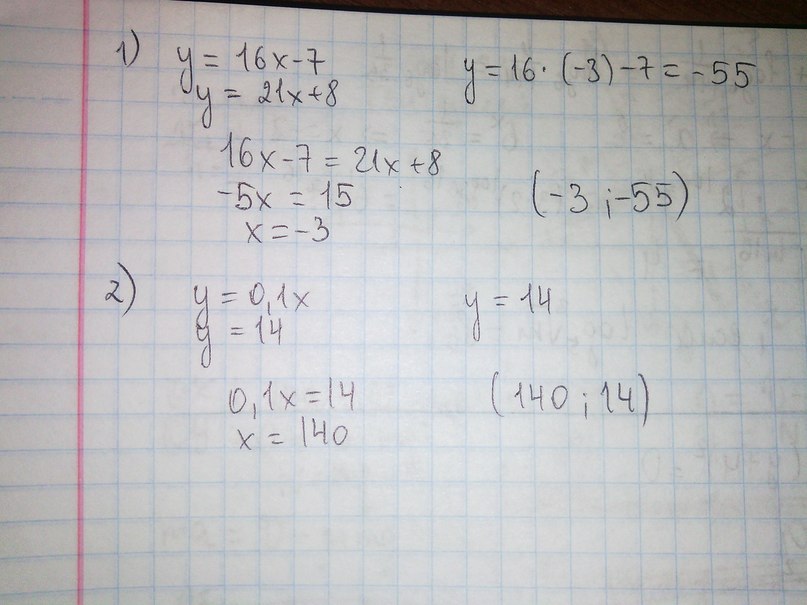 1) y = 16x-7
y = 21x+8
16x-7 = 21x+8
-5x = 15
x = -3
y = 16· (-3) -7 = -55
(-3 ; -55)
2) y = 0,1x
y = 14
0,1x = 14
x = 140
y = 14
(140 ; 14)